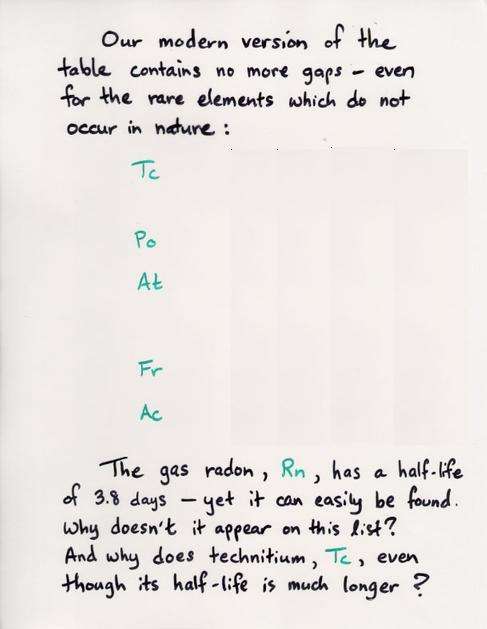 Our modern version of the
table contains no more gaps – even
for the rare elements which do not
occur in nature :
Tc
Po
At
Fr
Ac
The gas radon, Rn, has a half-life
of 3.8 days – yet it can easily be found.
Why doesn't it appear on this list?
And why does technitium, Tc, even
though its half-life is much longer ?